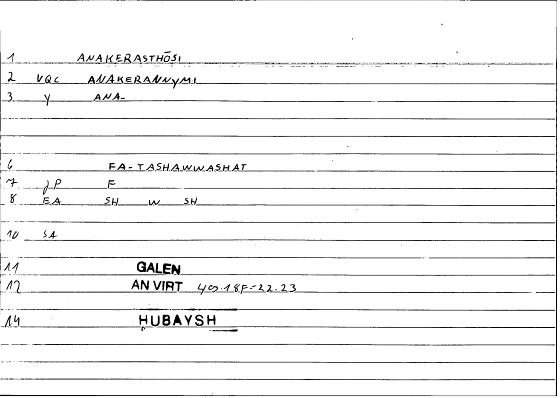 1 ANAKERASTHŌSI
2 VQC ANAKERANNYMI
3 Y ANA-
6 FA-TASHAWWASHAT
7 JP F
8 EA SH W SH
10 SA
11 GALEN
12 AN VIRT 40.18F-22.23
14 HUBAYSH